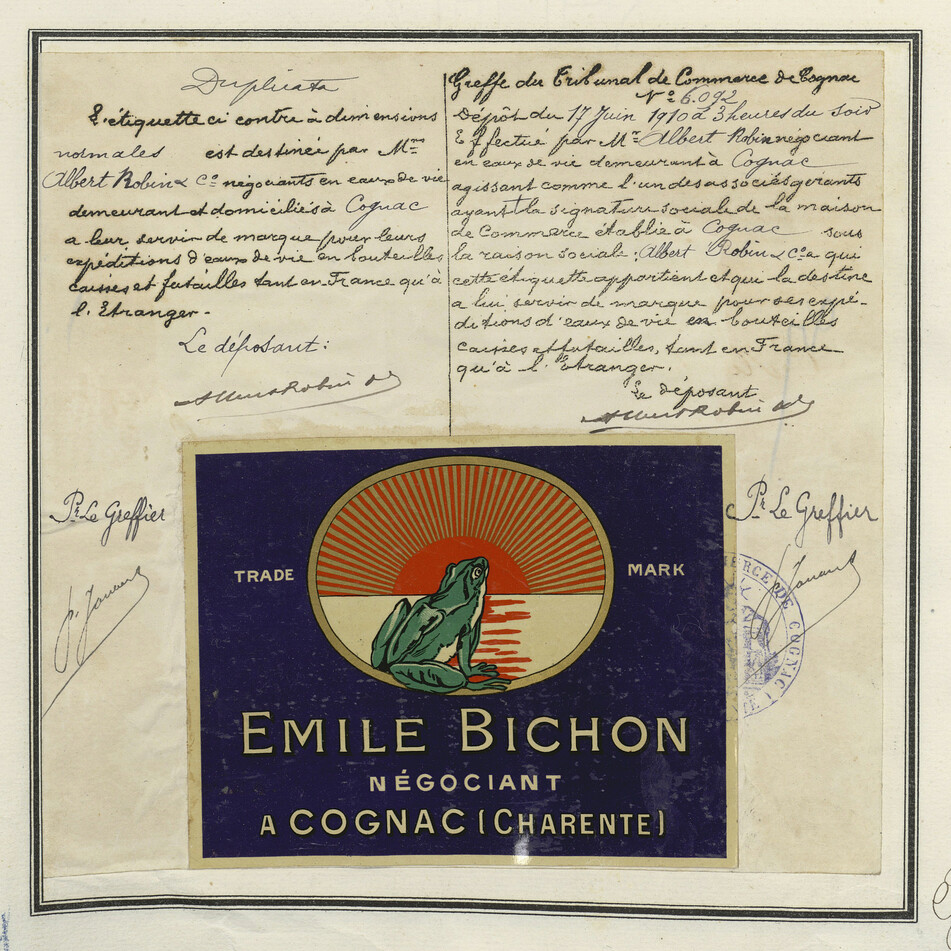 Duplicata
L'étiquette ci contre à dimensions
normales est destinée par Mrs
Albert Robin & Co négociants en eaux de vie
demeurant et domiciliés à Cognac
a leur servir de marque pour leurs
expéditions d'eaux de vie en bouteilles
caisses et futailles tant en France qu'à
l'Etranger.
Le déposant:
Albert Robin & Co
Pr Le Greffier
Greffe du Tribunal de Commerce de Cognac
No 6.092
Dépôt du 17 Juin 1910 à 3 heures du soir
Effectué par Mr Albert Robin négociant
en eaux de vie demeurant à Cognac
agissant comme l'un des associés gérants
ayant la signature sociale de la maison
de Commerce établie à Cognac sous
la raison sociale: Albert Robin & Co a qui
cette étiquette appartient et qui la destine
a lui servir de marque pour ses expé-
ditions d'eaux de vie en bouteilles
caisses et futailles, tant en France
qu'à l'Etranger.
Le déposant
Albert Robin & Co
Pr Le Greffier
MERCE DE COGNAC
TRADE MARK
EMILE BICHON
NÉGOCIANT
A COGNAC (CHARENTE)